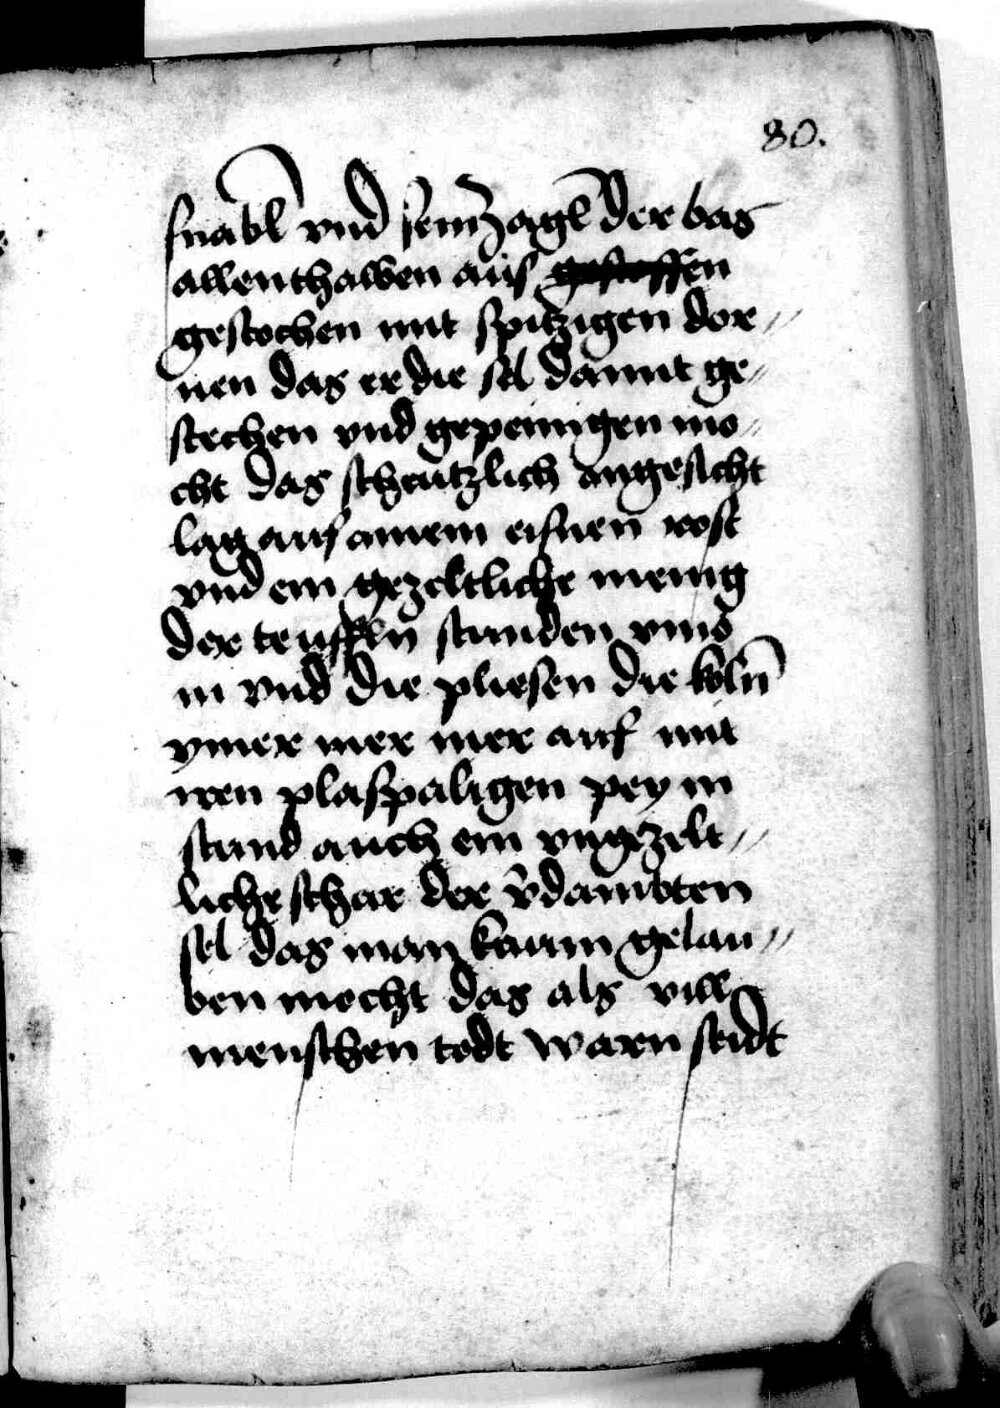 80.
snabl vnd sein zagl der bas
allenthalben aus gestossen
gestochen mit spitzigen dor〃
nen das er die sel damit ge〃
stechen vnd gepeinigen mo〃
cht das scheutzlich angesicht
lag auf ainem eisnen rost
vnd ein gezeltliche menig
der teuffeln stunden vmb
in vnd die pliesen die koln
ymer mer mer auf mit
iren plaspaligen pey in
stund auch ein vngezelt〃
liche schar der v̄dambten
sel das man kaum gelau〃
ben mocht das als vill
menschen todt warn seidt